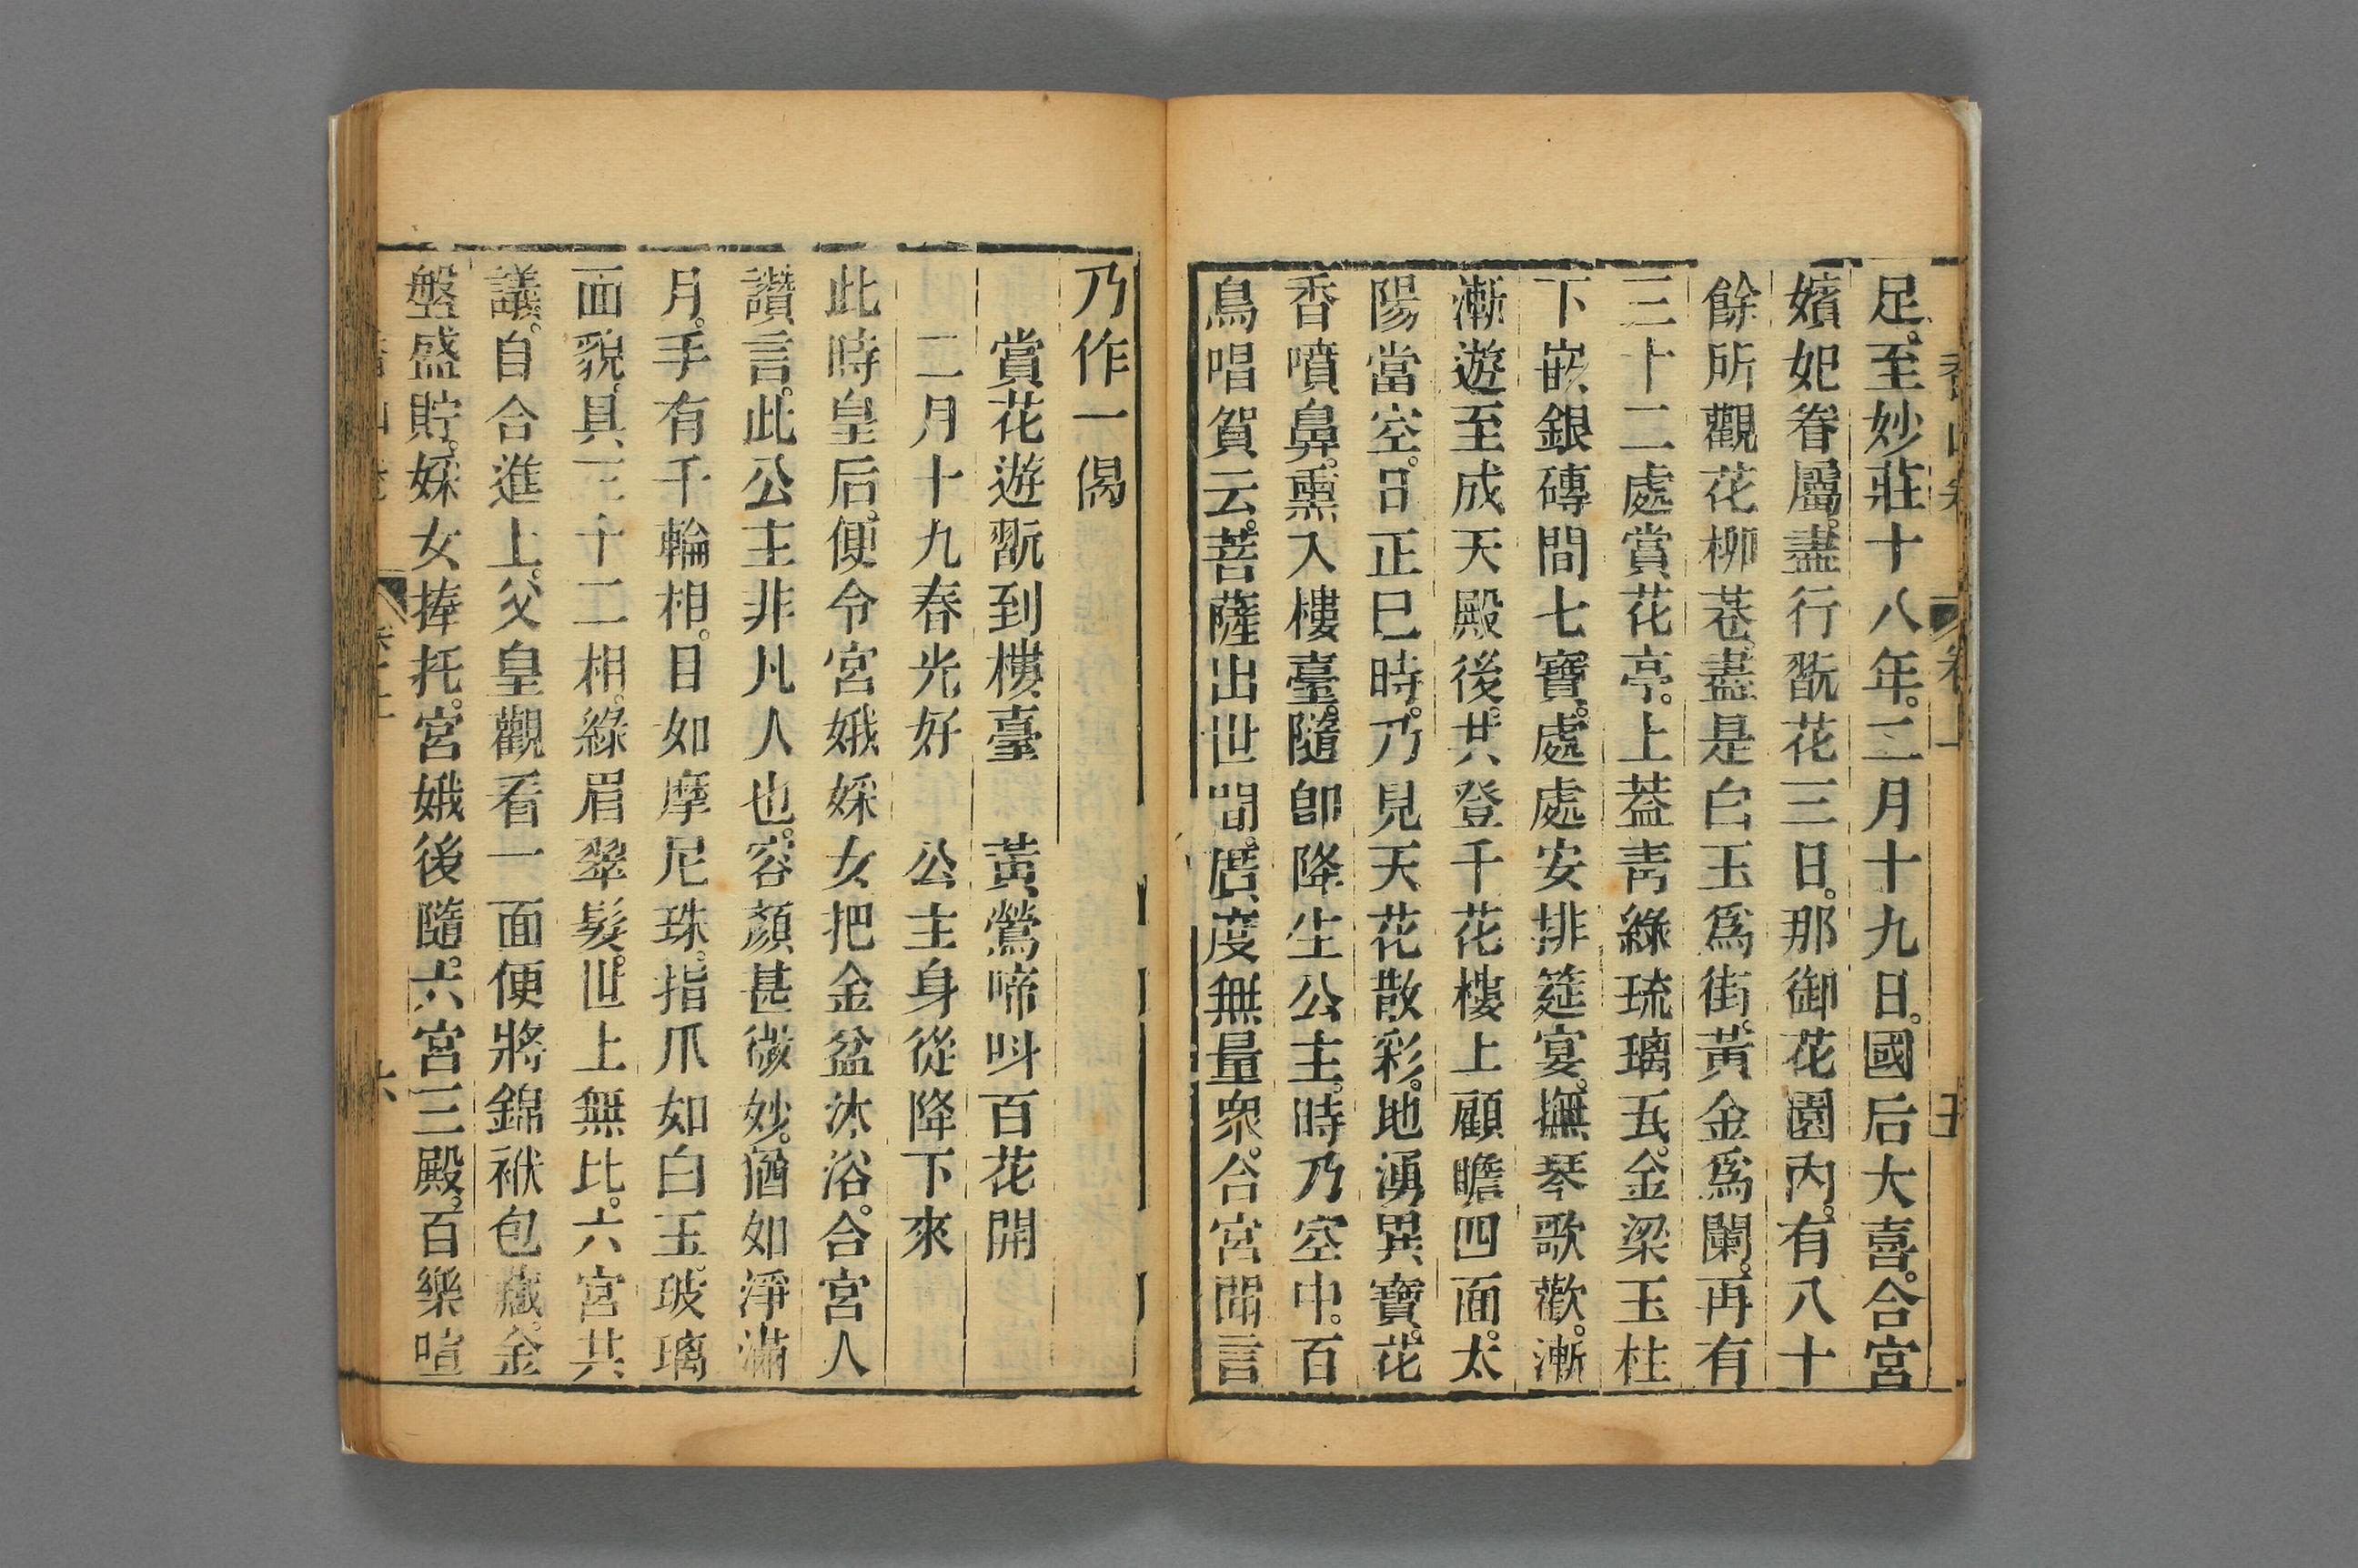 足。至妙莊十八年。二月十九日。國后大喜。合宮
嬪妃眷屬。盡行翫花三日。那御花園內。有八十
餘所觀花柳巷。盡是白玉爲街。黃金爲闌。再有
三十二處賞花亭。上葢靑綠琉璃瓦。金梁玉柱
下嵌銀磚間七寶。處處安排筵宴。撫琴歌歡。漸
漸遊至成天殿後。共登千花樓上顧瞻四面。太
陽當空。日正巳時。乃見天花散彩。地湧異寶。花
香噴鼻。熏入樓臺。隨卽降生公主。時乃空中。百
鳥唱賀云。菩薩出世間。廣度無量衆。合宮聞言
乃作一偈
賞花遊翫到樓臺 黃鶯啼呌百花開
二月十九春光好 公主身從降下來
此時皇后。便令宮娥婇女把金盆沐浴。合宮人
讚言。此公主非凡人也。容顏甚微妙。猶如淨滿
月。手有千輪相。目如摩尼珠。指爪如白玉。玻璃
面貌。具三十二相。綠眉翠髮。世上無比。六宮共
議。自合進上。父皇觀看一面便將錦袱包藏。金
盤盛貯。婇女捧托。宮娥後隨。六宮三殿。百樂喧